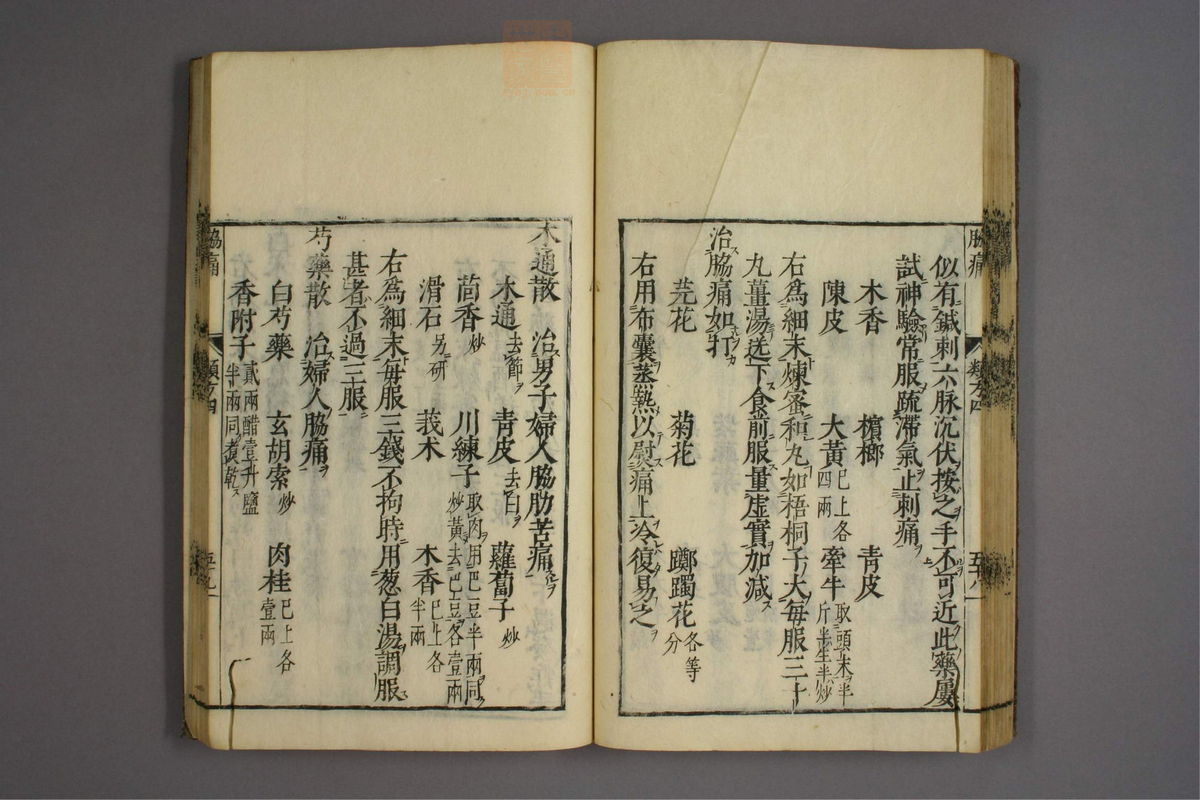 脇痛 類方四
似有鍼刺六脉沉伏按之手不可近此藥屢
試神驗常服疏滯氣止刺痛
木香 檳榔 青皮
陳皮 大黃已上各四兩 牽牛取頭末半斤半生半炒
右爲細末煉蜜和丸如梧桐子大每服三十
九薑湯送下食前服量虛實加減
治脇痛如打
芫花 菊花 躑躅花各等分
右用布囊蒸熱以熨痛上冷復易之
木通散 治男子婦人脇肋苦痛
木通去節 青皮去白 蘿蔔子炒
茴香炒 川練子取肉用巴豆半兩同炒黃去巴豆各壹兩
滑石另研 莪木 木香已上各半兩
右爲細末每服三錢不拘時用葱白湯調服
甚者不過三服
芍藥散 治婦人脇痛
白芍藥 玄胡索炒 肉桂已上各壹兩
香附子貳兩醋壹升鹽半兩同煮乾
脇痛 類方四